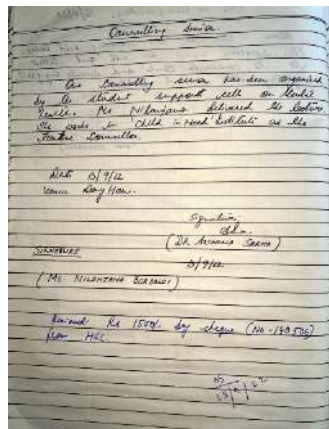 Counselling Session
One Counselling session has been organised
by the student support cell on Mental
Health. Ms Nilanjana delivered the lecture
She works in 'Child in Need' Institute as the
Counsellor.
Date 13/9/22
Venue Day Hour.
Signature
(DR ARCHANA SARMA)
13/9/22
SIGNATURE
(MS. NILANJANA BORDOLOI)
Received Rs 1500/- by cheque (No - 190506)
from HRC.
13/9/22